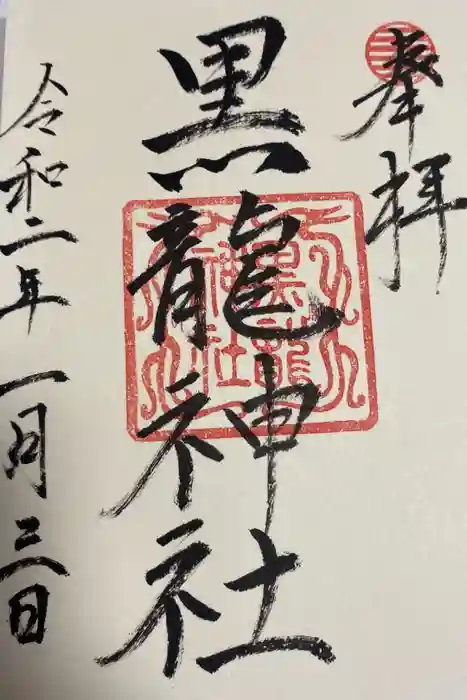 奉拝
黒龍神社
令和二年一月三日